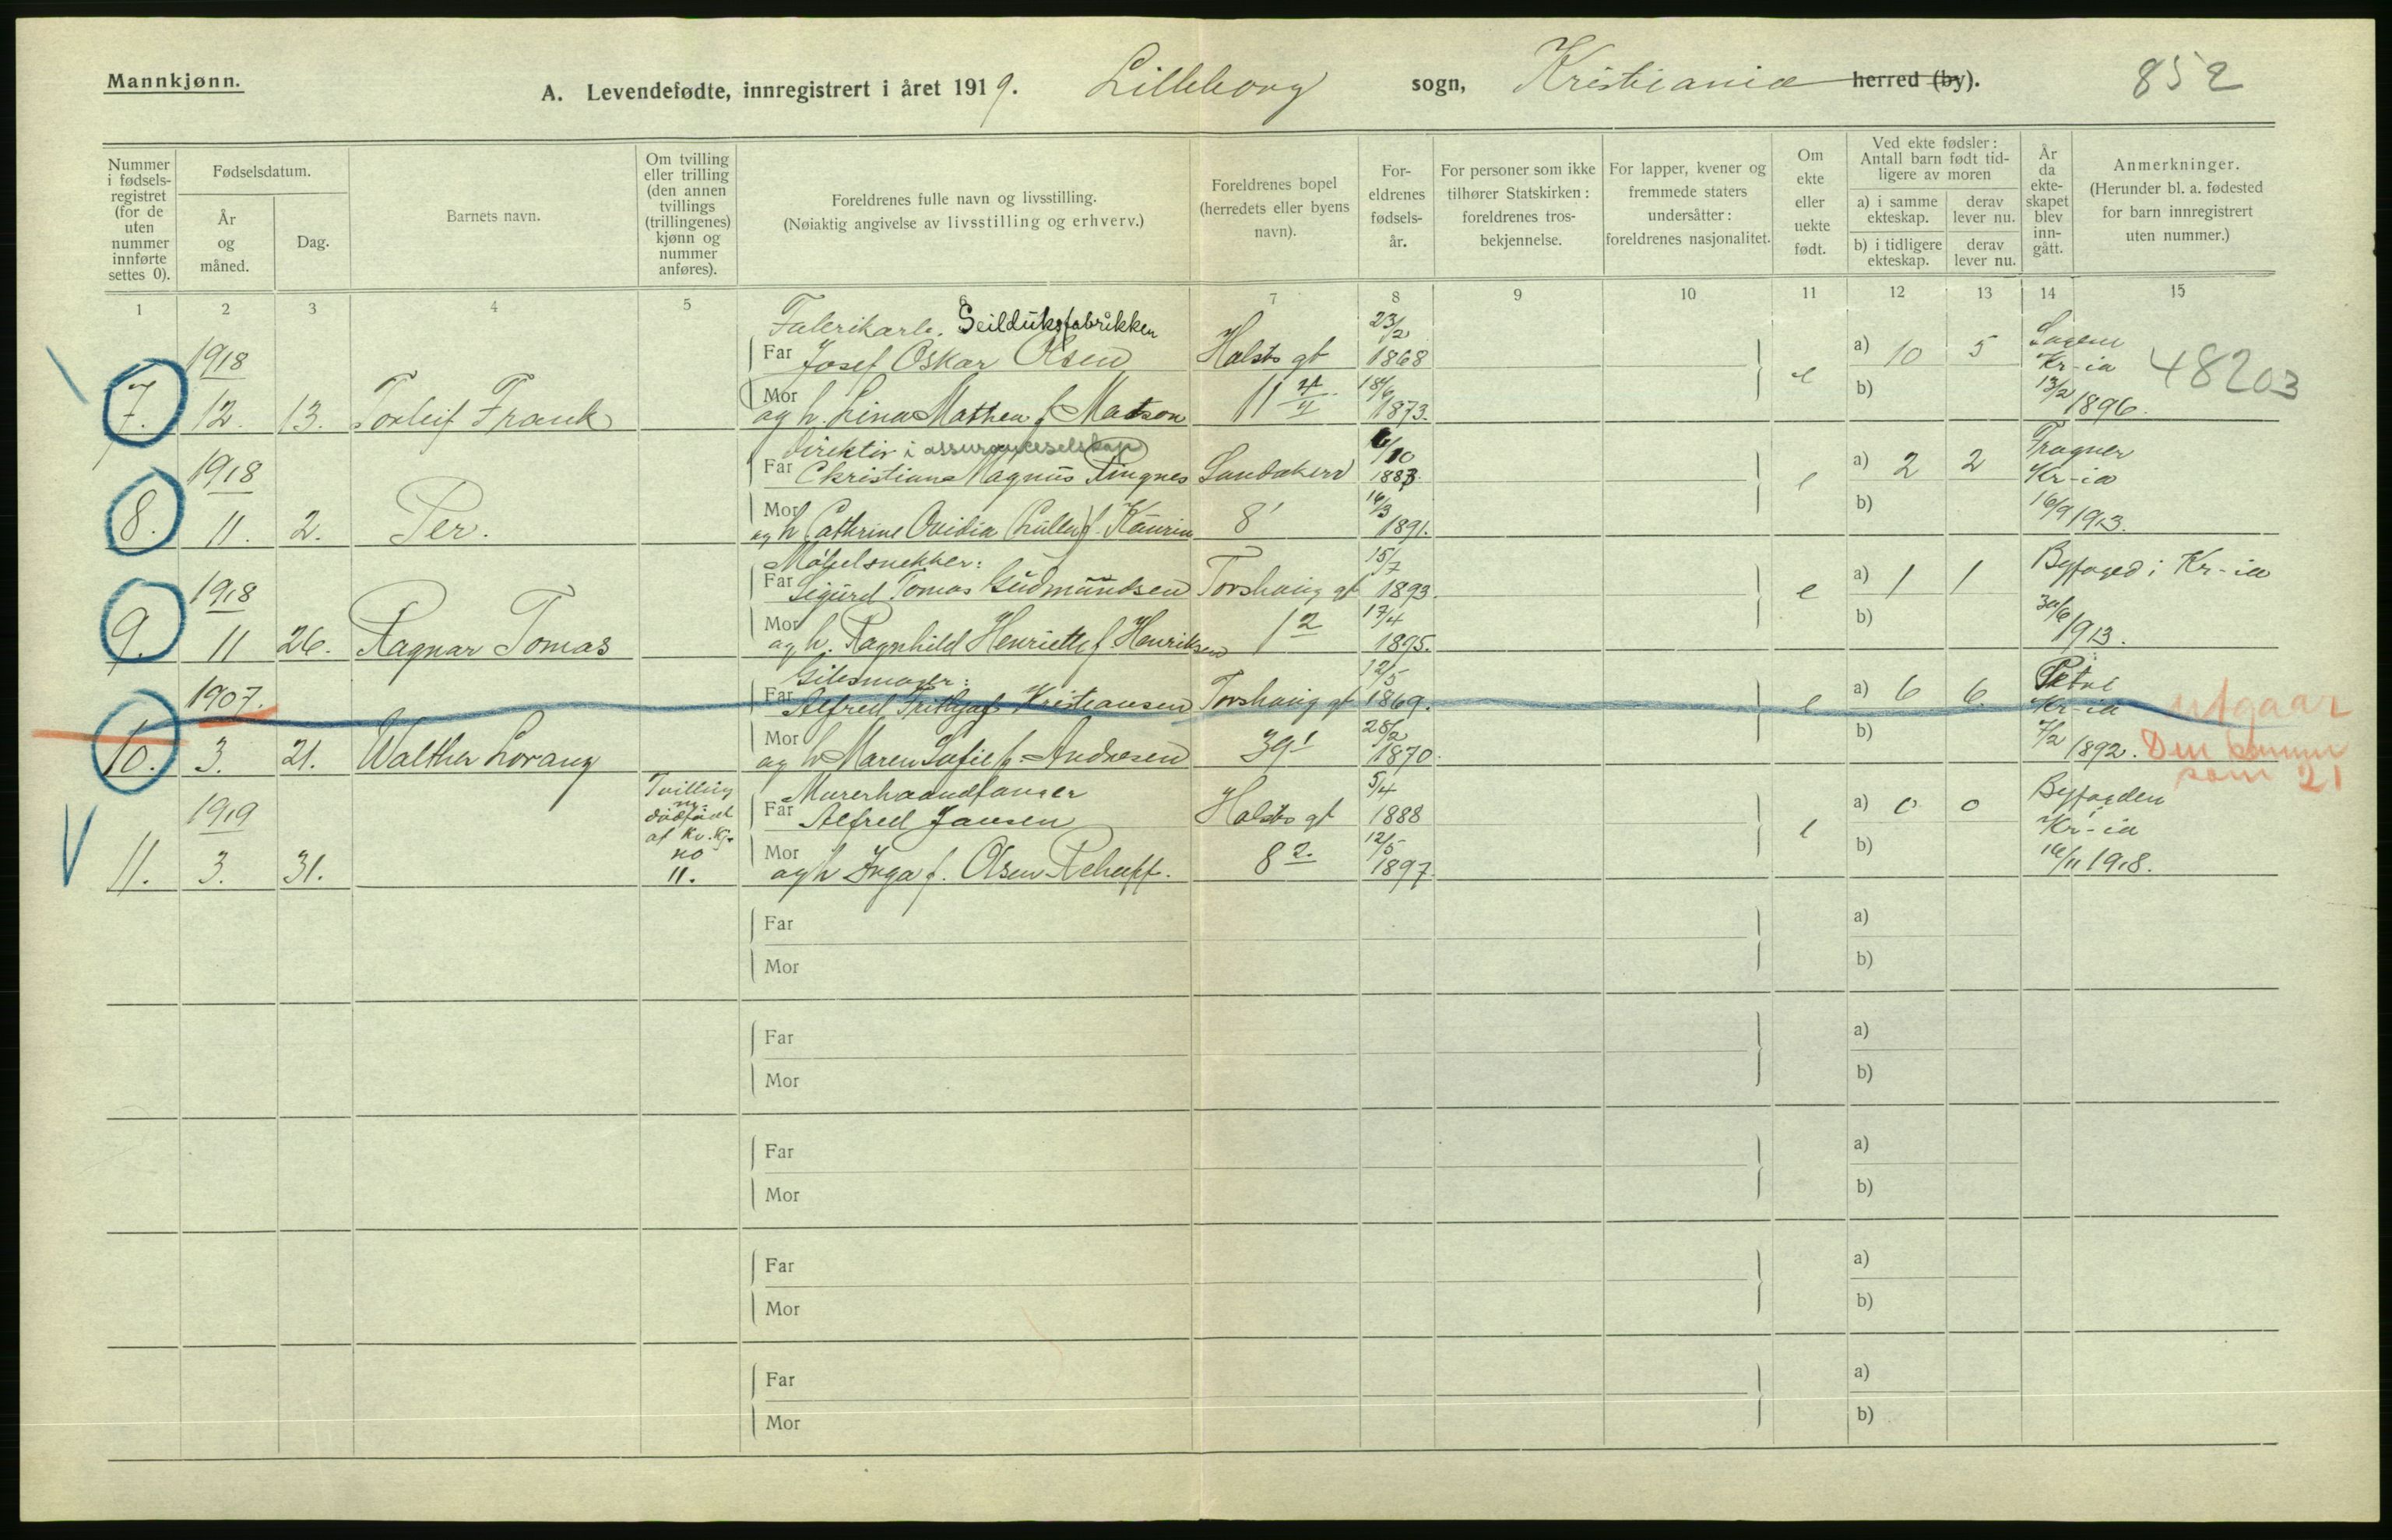 Mannkjønn.
A. Levendefødte, innregistrert i året 1919. Lilleborg sogn, Kristiania herred (by).
852
Nummer i fødsels-registret (for de uten nummer innførte settes 0).
Fødselsdatum.
År og måned.
Dag.
Barnets navn.
Om tvilling eller trilling (den annen tvillings (trillingenes) kjønn og nummer anføres).
Foreldrenes fulle navn og livsstilling.
(Nøiaktig angivelse av livsstilling og erhverv.)
Foreldrenes bopel (herredets eller byens navn).
For-eldrenes fødsels-år.
For personer som ikke tilhører Statskirken: foreldrenes tros-bekjennelse.
For lapper, kvener og fremmede staters undersåtter: foreldrenes nasjonalitet.
Om ekte eller uekte født.
Ved ekte fødsler: Antall barn født tid-ligere av moren
a) i samme ekteskap.
derav lever nu.
b) i tidligere ekteskap.
derav lever nu.
År da ekte-skapet blev inn-gått.
Anmerkninger.
(Herunder bl. a. fødested for barn innregistrert uten nummer.)
1 2 3 4 5 6 7 8 9 10 11 12 13 14 15
Fabrikarb. Seilduksfabrikken
1918 Far Josef Oskar Olsen Halsts gt 23/2 1868 e a) 10 5 Sagene Kr-ia 48203
7. 12. 13. Torleif Frank Mor og h. Lina Mathea f. Matson 11 1873. b) 13/2 1896.
Direktør i assuranceselskap
1918 Far Christian Magnus Ringnes Sandakerv 6/10 1883. e a) 2 2 Frogner Kr-ia
8. 11. 2. Per. Mor og h Cathrine Ovidia (Lulla) f. Kaurin 8' 16/3 1891. b) 16/9 1913.
Møbelsnekker:
1918 Far Sigurd Tomas Gudmundsen Torshaug gt 15/7 1893. e a) 1 1 Byfoged i Kr-ia
9. 11 26. Ragnar Tomas Mor og h. Ragnhild Henriette f Henriksen 1 2 17/4 1895. b) 30/6 1913.
1907. Far Alfred Frithjof Kristiansen Torshaug gt 12/5 1869. e a) 6 6. Petri Kr-ia utgaar
10. 3. 21. Walther Lorang Mor og h Maren Sofie f. Andresen 39' 28/2 1870. b) 7/2 1892. Den kommer som 21
Tvilling m. dødfødt af Kv. Kj. no 11.
Murerhaandlanger
1919 Far Alfred Jansen Halsts gt 5/4 1888 e a) 0 0 Byfogden Kr-ia
11. 3. 31. Mor og h Inga f. Olsen Rehuff. 8 2. 12/5 1897. b) 16/11 1918.
Far a)
Mor b)
Far a)
Mor b)
Far a)
Mor b)
Far a)
Mor b)
Far a)
Mor b)